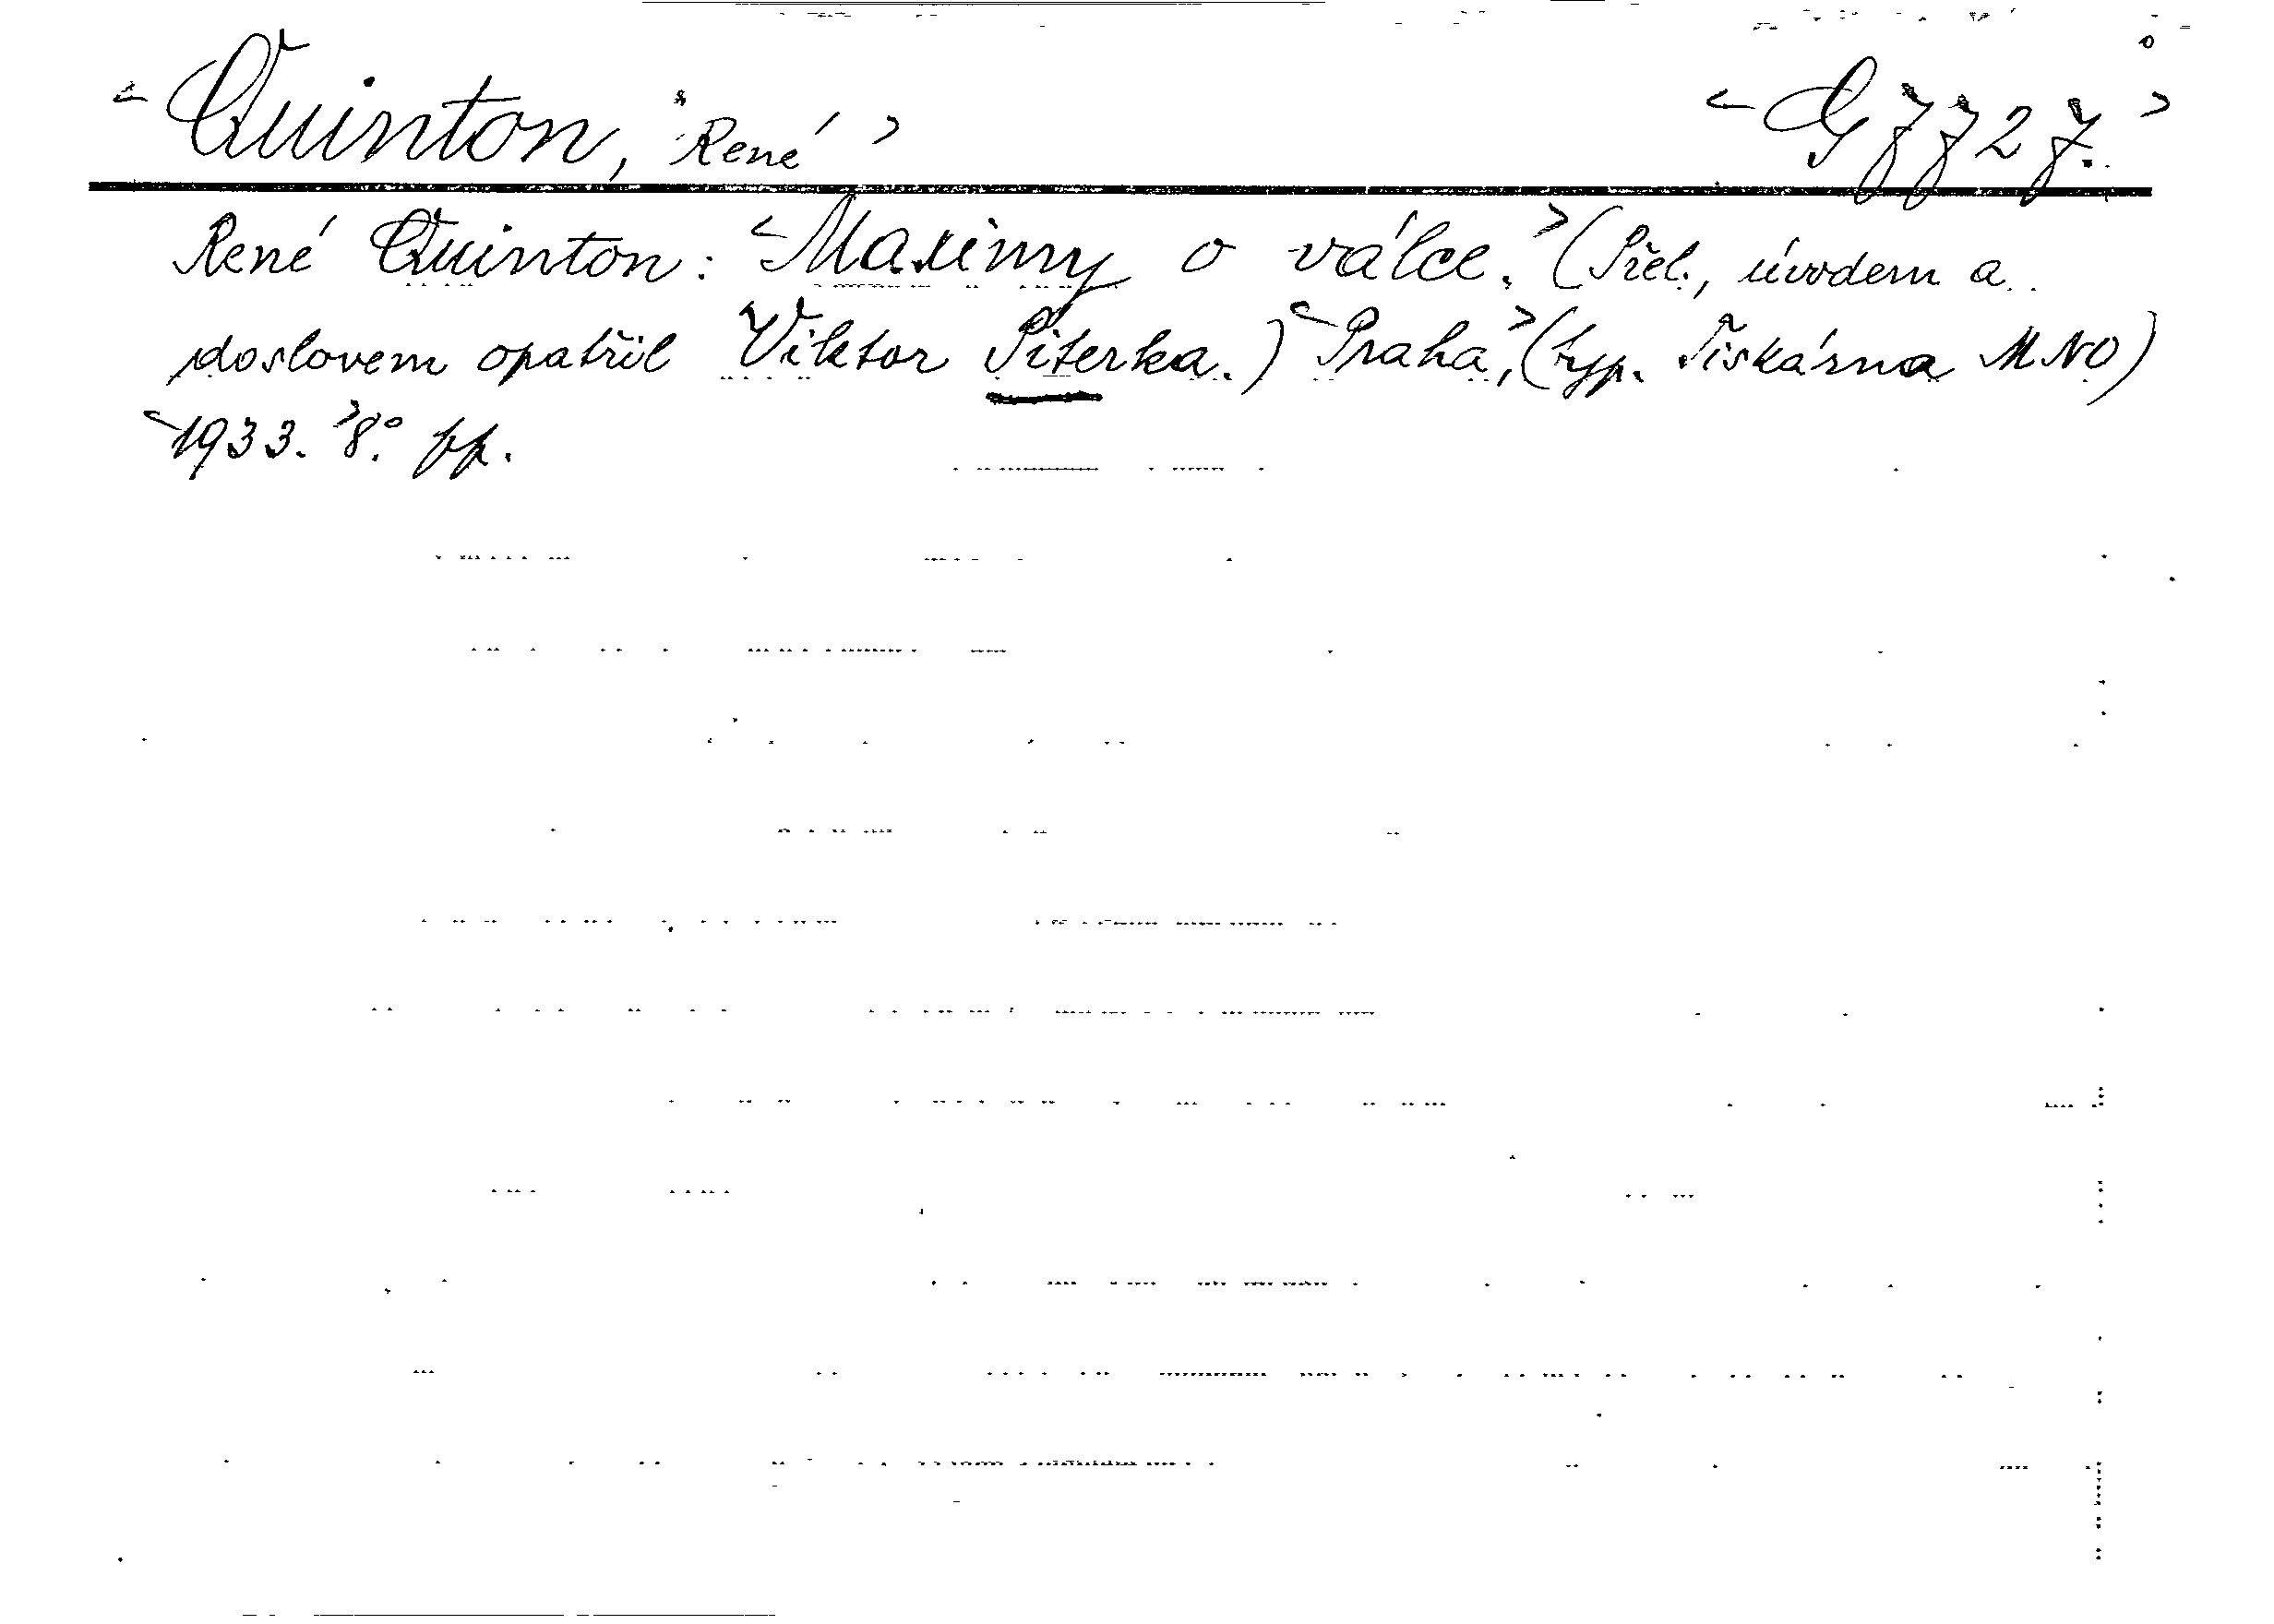 <Quinton, René> <G 7727.>
René Quinton: <Maximy o válce.> (Přel., úvodem a
doslovem opatřil Viktor Piterka.) <Praha,> (typ. Tiskárna MNO)
<1933.> 8°. pp.